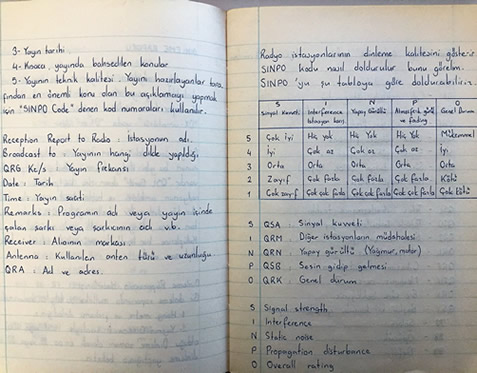 3- Yayın tarihi.
4- Kısaca, yayında bahsedilen konular
5- Yayının teknik kalitesi. Yayını hazırlayanlar tara
fından en önemli konu olan bu açıklamayı yapmak
için "SINPO Code" denen kod numaraları kullanılır.
Reception Report to Radio : İstasyonun adı.
Broadcast to : Yayının hangi dilde yapıldığı
QRG Kc/s : Yayın frekansı
Date : Tarih
Time : Yayın saati
Remarks : Programın adı veya yayın içinde
çalan şarkı veya şarkıcının adı v.b.
Receiver : Alıcının markası
Antenna : Kullanılan anten türü ve uzunluğu
QRA : Ad ve adres.
Radyo istasyonlarının dinleme kalitesini gösterir
SINPO kodu nasıl doldurulur bunu görelim.
SINPO'yu şu tabloya göre doldurabiliriz.
S I N P O
Sinyal Kuvveti Interference İstasyon karış. Yapay Gürültü Atmosferik gürültü ve fading Genel Durum
5 Çok İyi Hiç Yok Hiç Yok Hiç Yok Mükemmel
4 İyi Çok az Çok az Çok az İyi
3 Orta Orta Orta Orta Orta
2 Zayıf Çok fazla Çok fazla Çok fazla Kötü
1 Çok zayıf Çok çok fazla Çok çok fazla Çok çok fazla Çok Kötü
S QSA : Sinyal kuvveti
I QRM : Diğer istasyonların müdahalesi
N QRN : Yapay gürültü (Yağmur, motor)
P QSB : Sesin gidip gelmesi
O QRK : Genel durum
S Signal strength
I Interference
N Static noise
P Propagation disturbance
O Overall rating